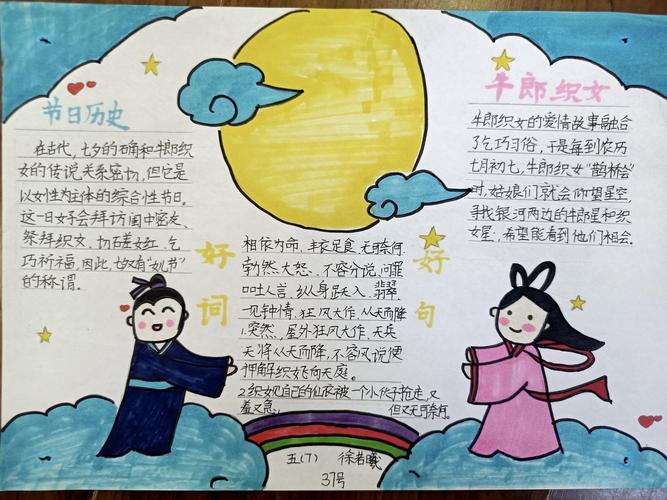 节日历史
在古代，七夕的确和牛郎织
女的传说关系密切，但它是
以女性为主体的综合性节日。
这一日女子会拜访闺中密友、
祭拜织女、切磋女红、乞
巧祈福，因此，七夕又有“女儿节”
的称谓。
好词
相依为命、丰衣足食、无可奈何、
勃然大怒、不容分说、问罪
口吐人言、纵身跃入、翡翠
一见钟情、狂风大作、从天而降
好句
1.突然，屋外狂风大作，天兵
天将从天而降，不容分说便
押解织女飞向天庭。
2.织女见自己的仙衣被一个小伙子抢走，又
羞又急， 但又无可奈何。
牛郎织女
牛郎织女的爱情故事融合
了乞巧习俗，于是每到农历
七月初七，牛郎织女“鹊桥会”
时，姑娘们就会仰望星空，
寻找银河两边的牛郎星和织
女星，希望能看到他们相会。
五(7) 徐若曦
37号